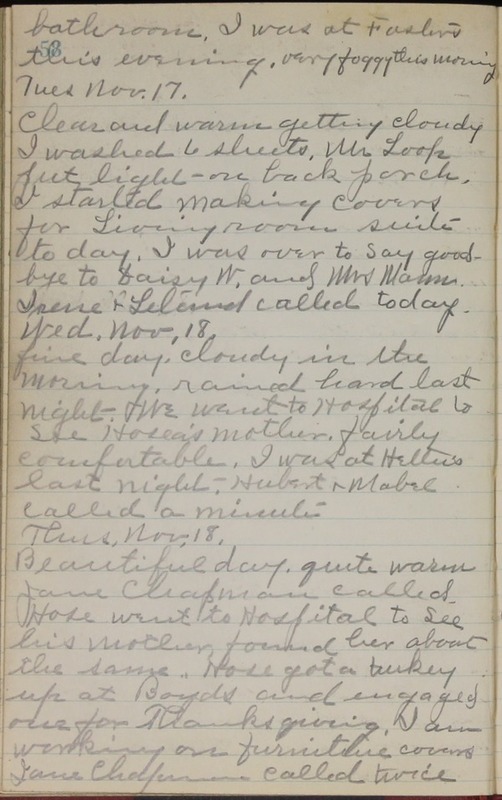 bathroom, I was at Foster's
53
this evening, very foggy this morning
Tues Nov. 17.
Clear and warm getting cloudy
I washed 6 sheets, Mr Loop
put light on back porch.
I started making covers
for Livingroom suite
to day, I was over to say good-
bye to Daisy W, and Mrs Mann.
Irene & Leland called today.
Wed. Nov, 18,
fine day, cloudy in the
morning, rained hard last
night. We went to Hospital to
see Hosea's mother, fairly
comfortable, I was at
last night, Hubert & Mabel
called a minute
Thus, Nov, 18,
Beautiful day. quite warm
Jane Chapman called
Hose went to Hospital to see
his mother, found her about
the same.. Hose got a turkey
up at Boyds and engaged
one for Thanksgiving, I am
working on furniture covers
Jane Chapman called twice